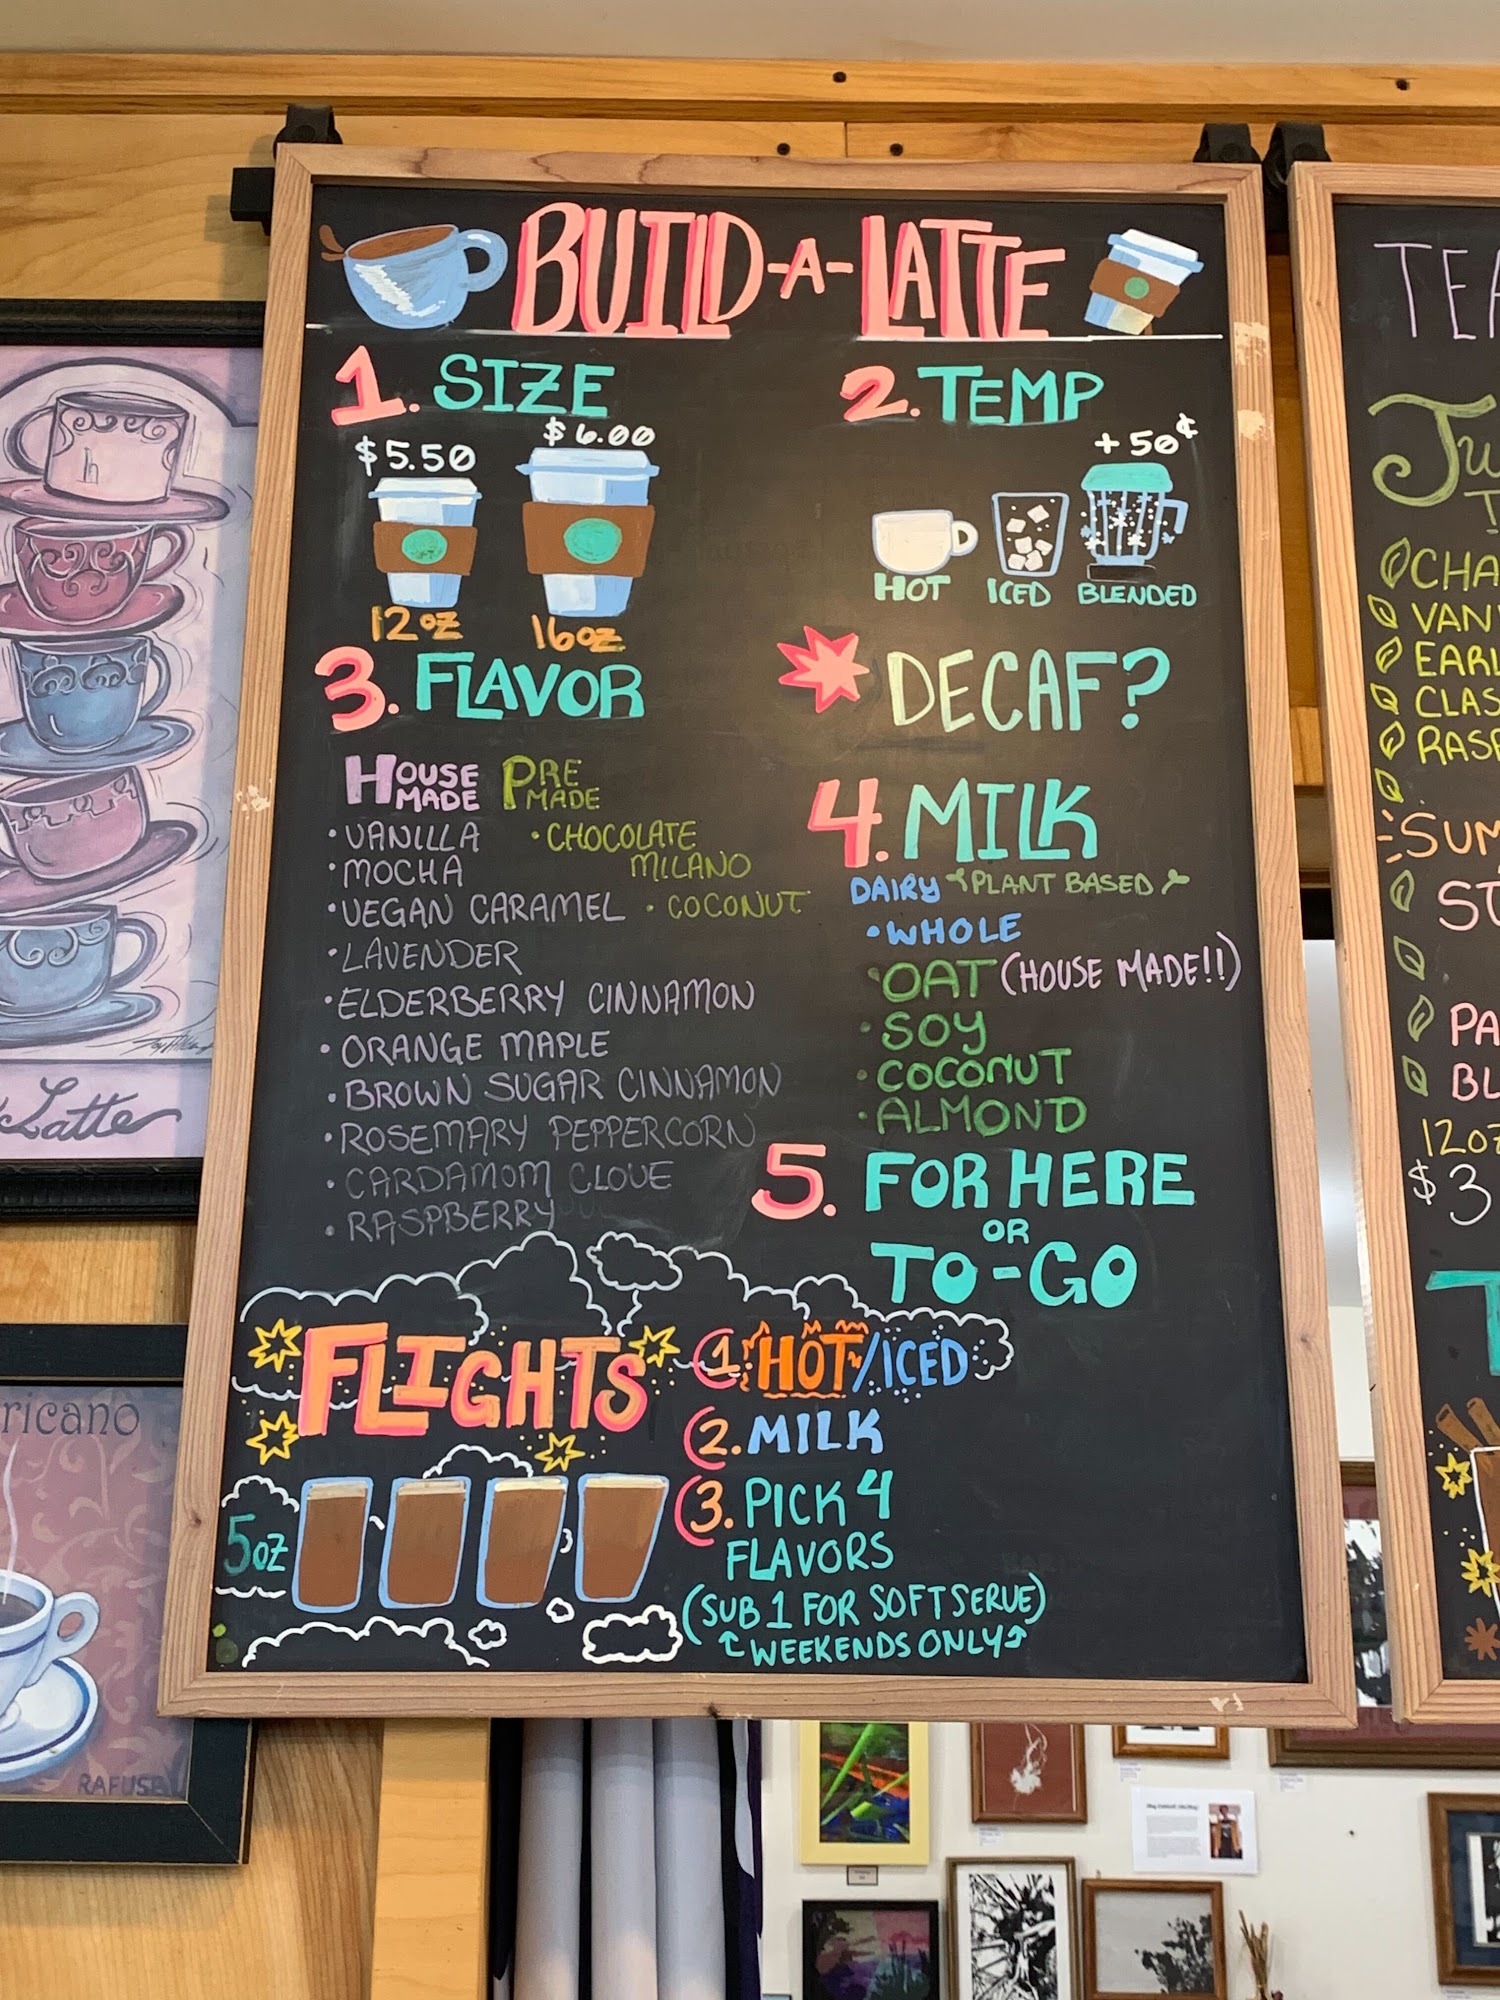 BUILD-A-LATTE
1. SIZE
$5.50
$6.00
12oz
16oz
2. TEMP
+50¢
HOT
ICED
BLENDED
3. FLAVOR
HOUSE MADE
PRE MADE
• VANILLA
• MOCHA
• VEGAN CARAMEL
• LAVENDER
• ELDERBERRY CINNAMON
• ORANGE MAPLE
• BROWN SUGAR CINNAMON
• ROSEMARY PEPPERCORN
• CARDAMOM CLOVE
• RASPBERRY
• CHOCOLATE
MILANO
• COCONUT
DECAF?
4. MILK
DAIRY
PLANT BASED
• WHOLE
• OAT (HOUSE MADE!!)
• SOY
• COCONUT
• ALMOND
5. FOR HERE
OR
TO-GO
FLIGHTS
5oz
1. HOT/ICED
2. MILK
3. PICK 4
FLAVORS
(SUB 1 FOR SOFTSERVE)
WEEKENDS ONLY
TEA
CHA
VAN
EARL
CLAS
RASP
SUM
PA
BL
12oz
$3
Latte
ricano
RAFUSE